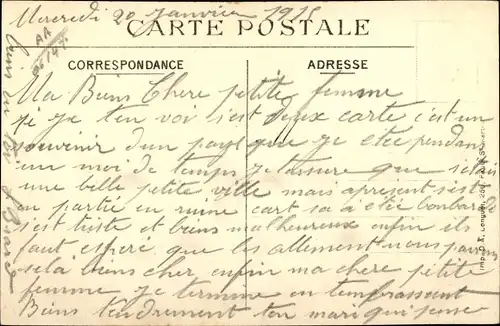 Mercredi 20 Janvier 1915
CARTE POSTALE
CORRESPONDANCE
ADRESSE
Ma Biens Chere petite femme
je ten voi s'est deux carte c'est un
souvenir d'un pays que je etée pendan
un moi de temps je tassure que s'etais
une belle petite ville mais apresent s'est
en partie en ruine cart sa a etée bonbardé
s'est triste et biens malheureux enfin ils
faut esperé que les allement nous
sela biens cher enfin ma chere petite
femme je termine en tembrassent
Biens tendrement ton mari qui pense
AA